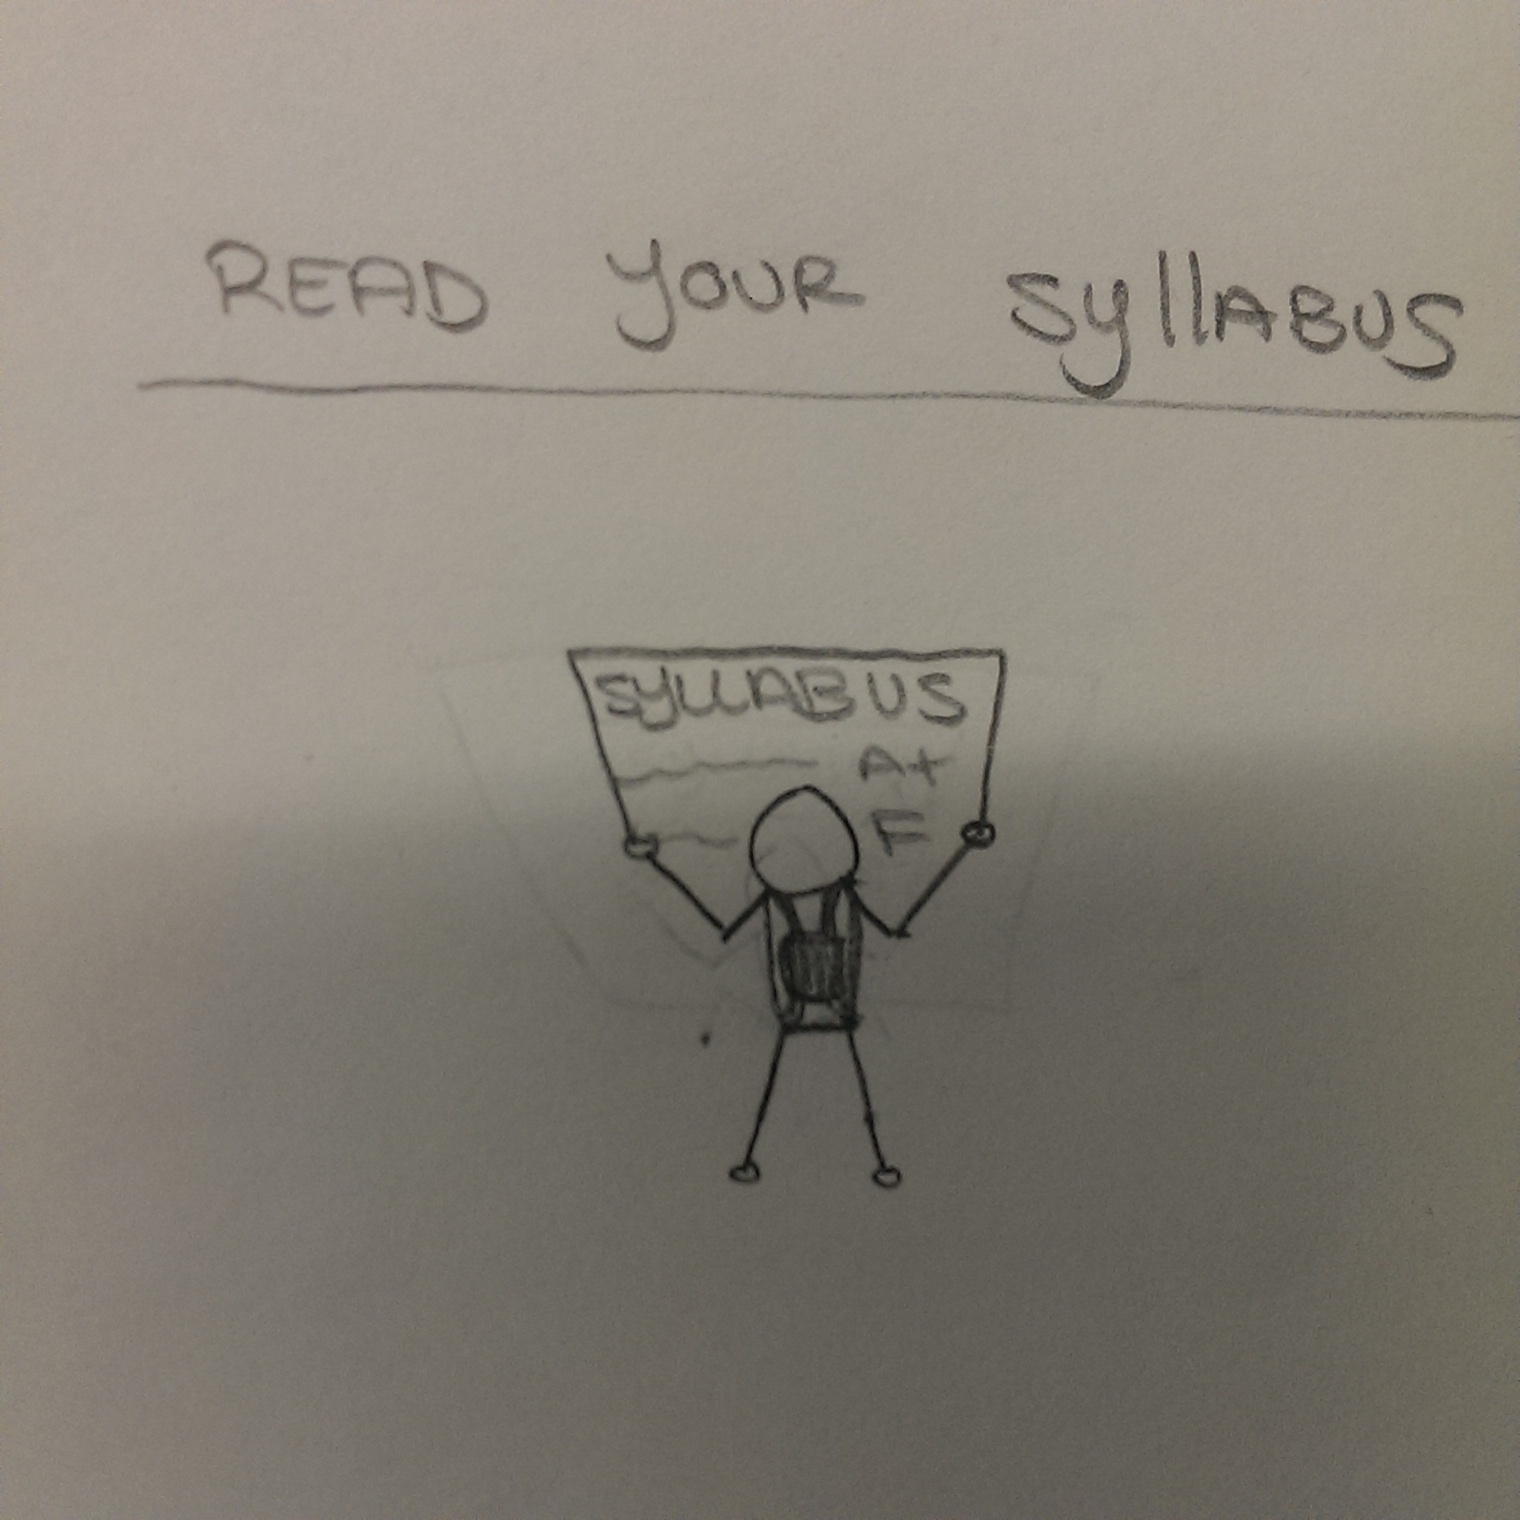 READ YOUR SyllABUS
SYLLABUS
A+
F